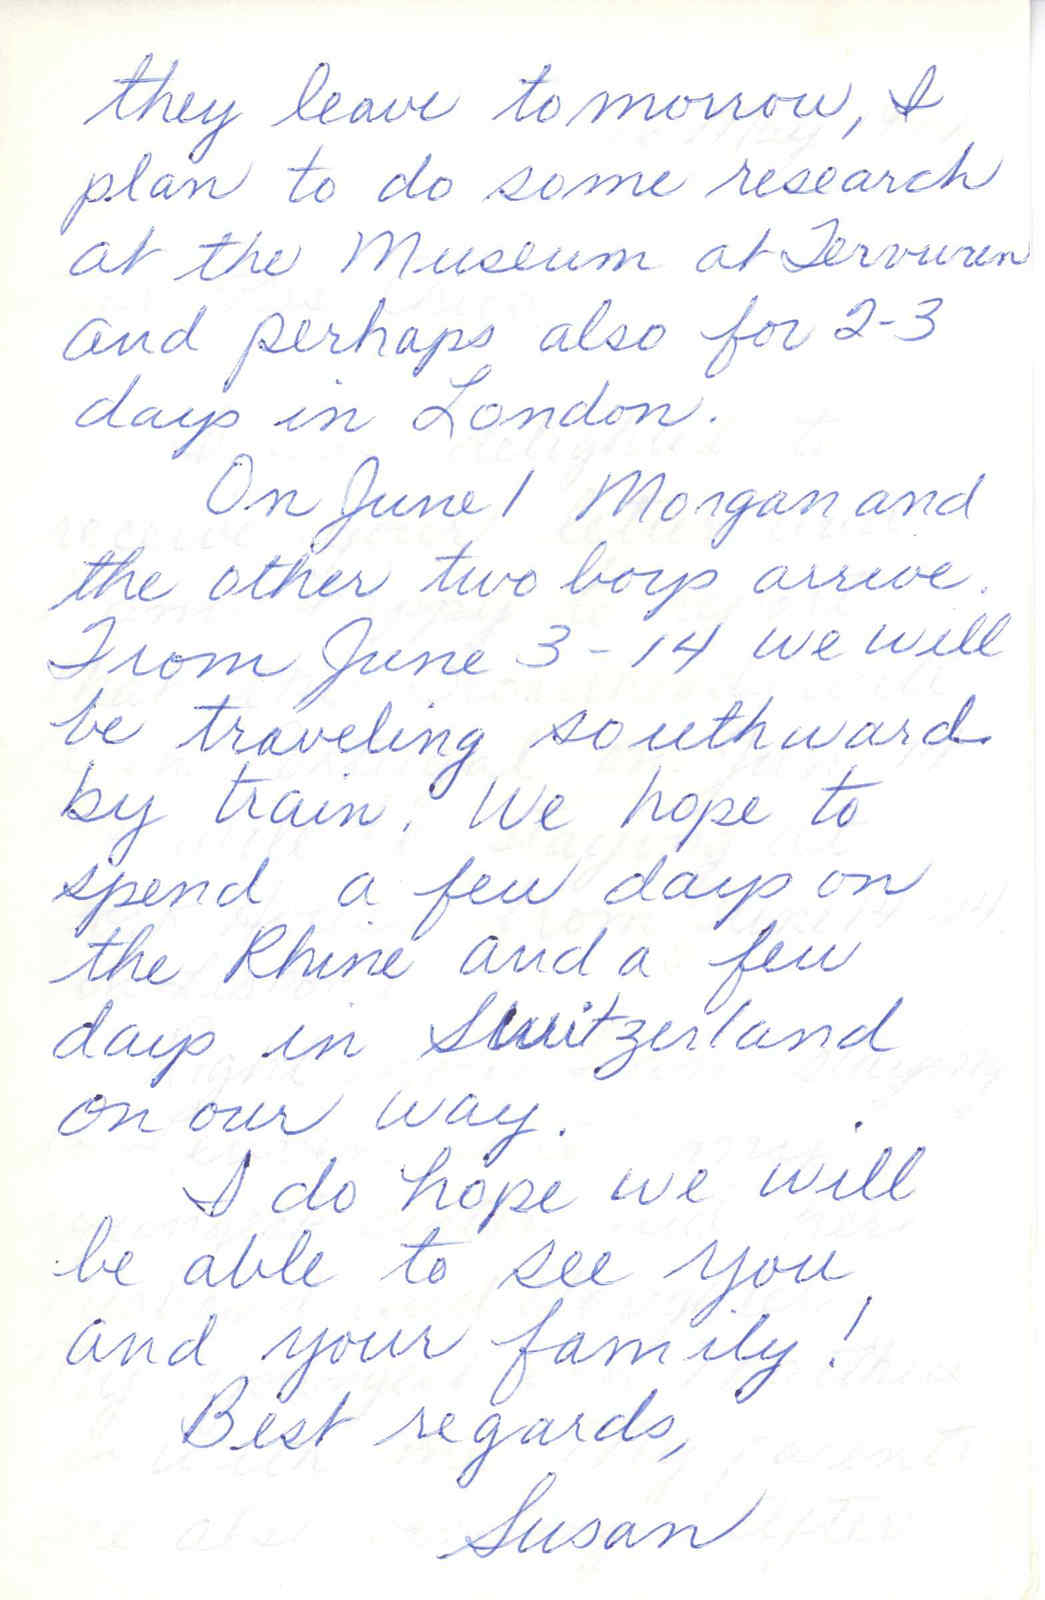 they leave tomorrow, I
plan to do some research
at the Museum at Tervuren
and perhaps also for 2-3
days in London.
On June 1 Morgan and
the other two boys arrive.
From June 3-14 we will
be traveling southward
by train. We hope to
spend a few days on
the Rhine and a few
days in Switzerland
on our way.
I do hope we will
be able to see you
and your family!
Best regards,
Susan